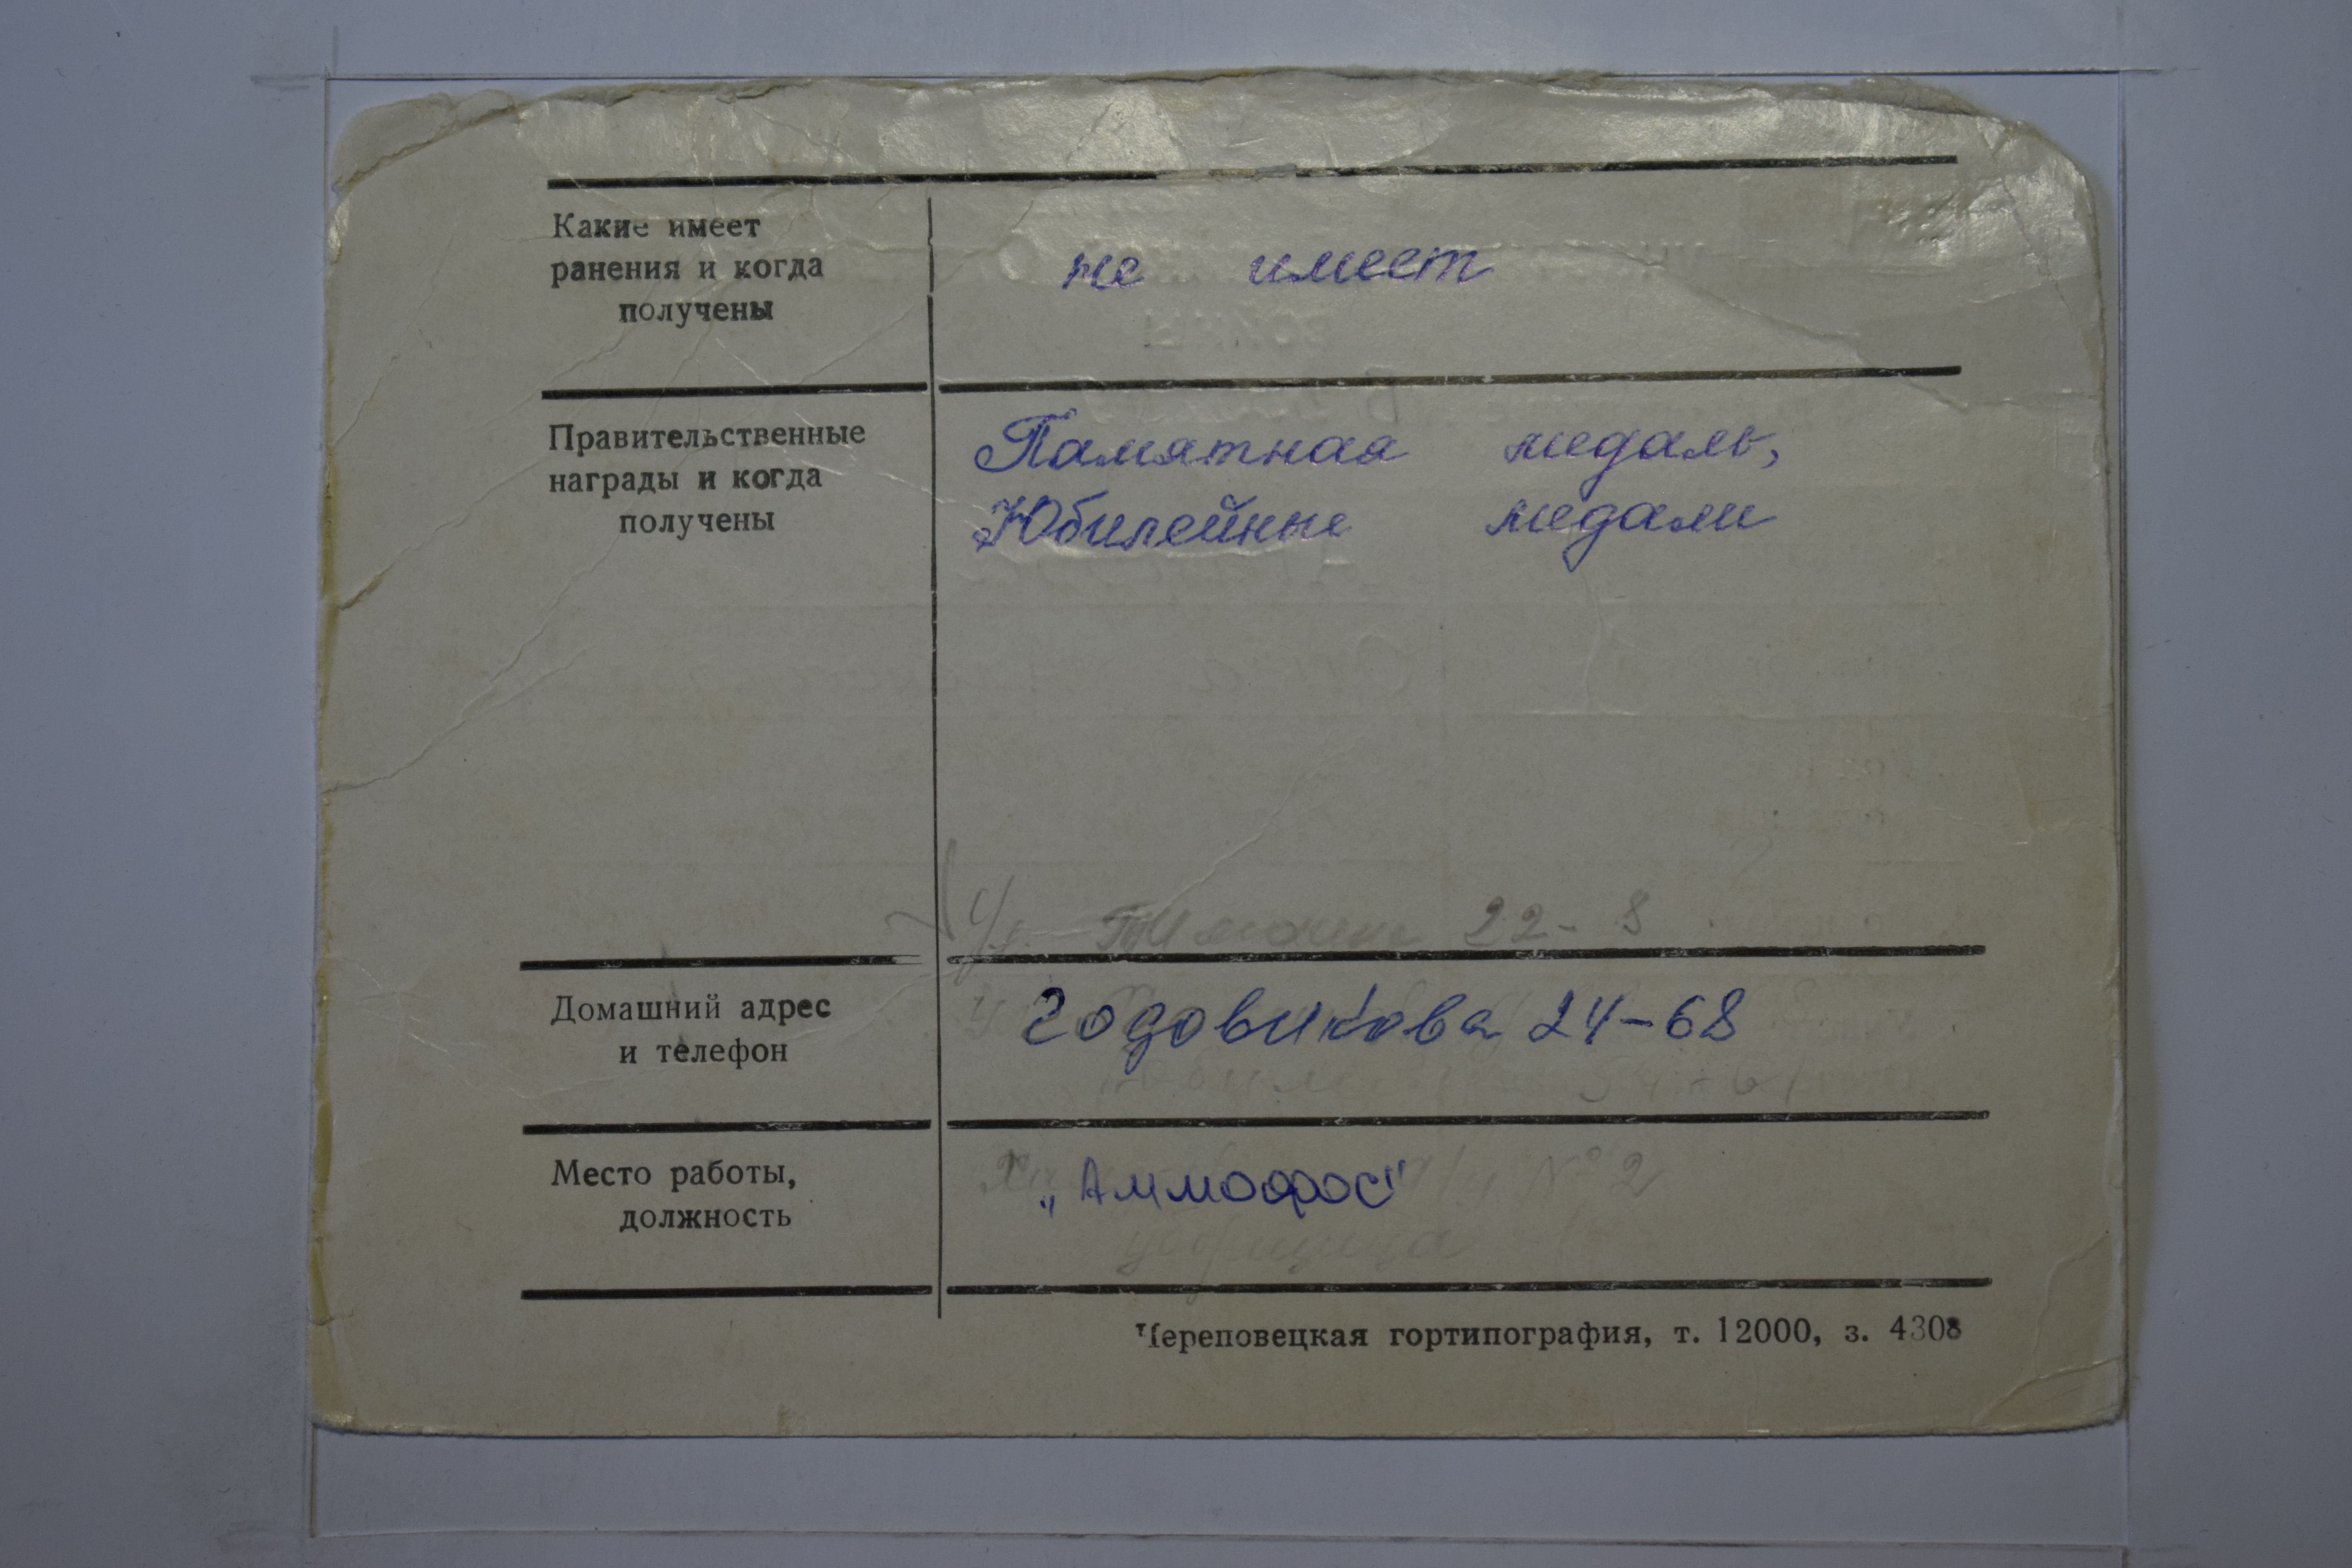 Какие имеет
ранения и когда
получены
не имеет
Правительственные
награды и когда
получены
Памятная медаль,
Юбилейные медали
Ул. 22-8
Домашний адрес
и телефон
Годовикова 24-68
Место работы,
должность
„Аммофос"
№2
Череповецкая гортипография, т. 12000, з. 4308